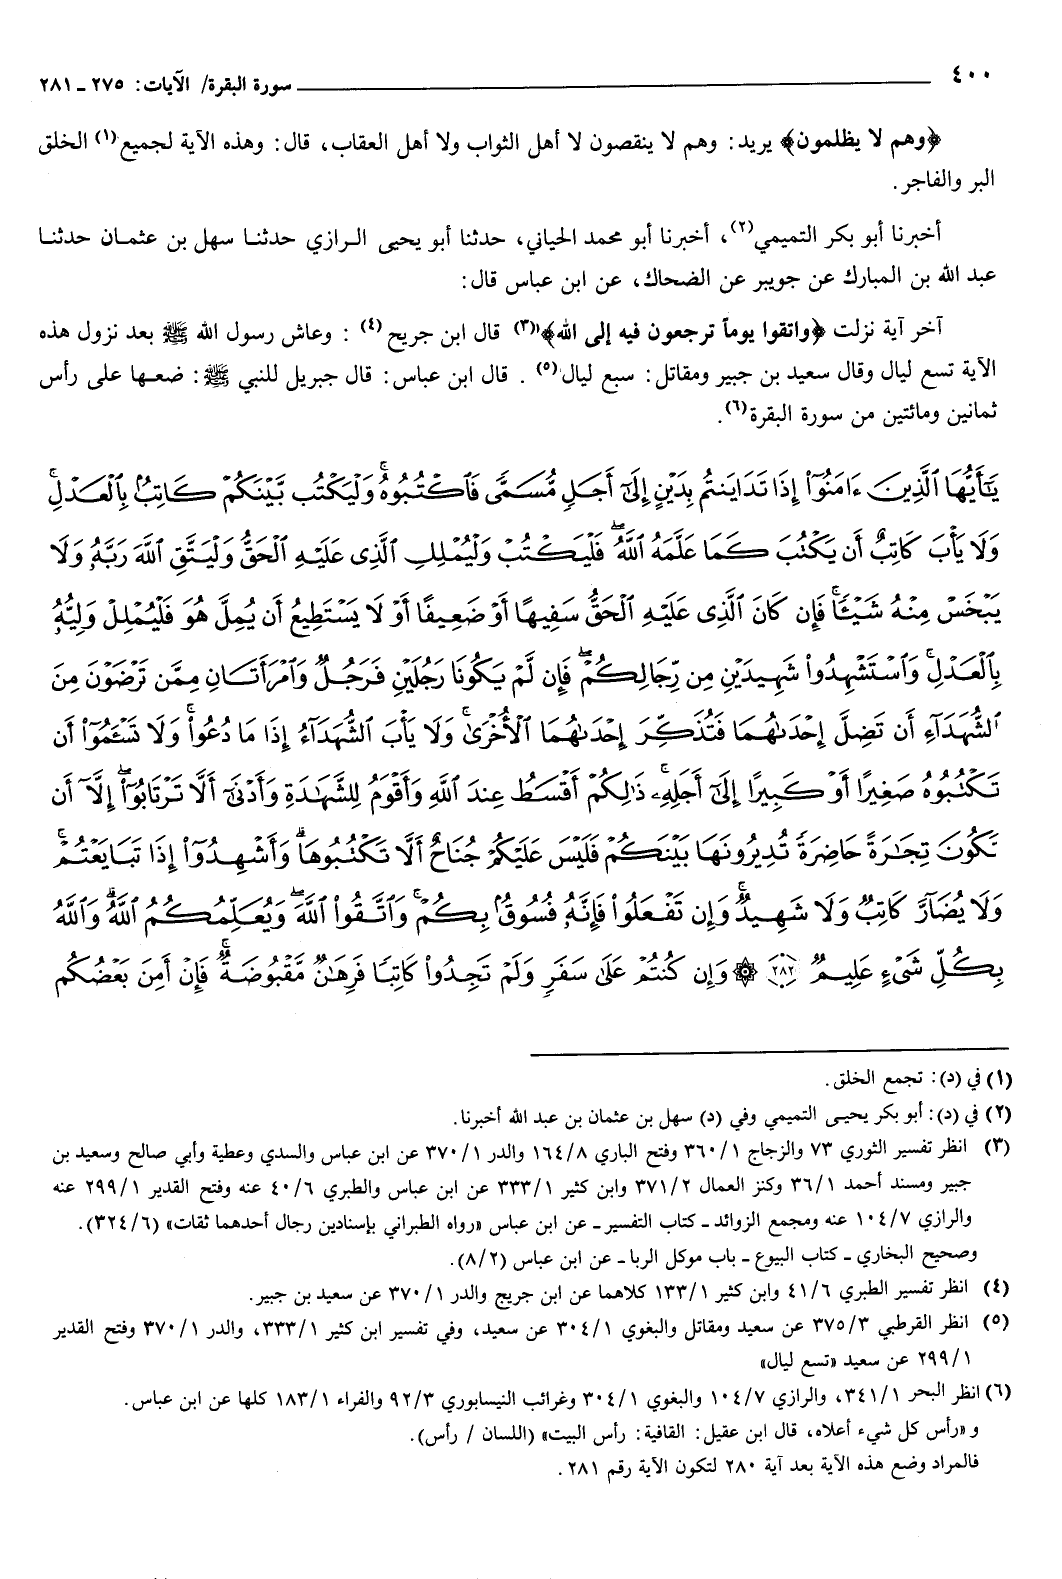 ٤٠٠
سورة البقرة/ الآيات: ٢٧٥ ـ ٢٨١
﴿وهم لا يظلمون﴾ يريد: وهم لا ينقصون لا أهل الثواب ولا أهل العقاب، قال: وهذه الآية لجميع(١) الخلق
البر والفاجر.
أخبرنا أبو بكر التميمي(٢)، أخبرنا أبو محمد الحياني، حدثنا أبو يحيى الرازي حدثنا سهل بن عثمان حدثنا
عبد الله بن المبارك عن جويبر عن الضحاك، عن ابن عباس قال:
آخر آية نزلت ﴿واتقوا يوماً ترجعون فيه إلى الله﴾(٣) قال ابن جريح(٤) : وعاش رسول الله ﷺ بعد نزول هذه
الآية تسع ليال وقال سعيد بن جبير ومقاتل: سبع ليال(٥) . قال ابن عباس: قال جبريل للنبي ﷺ: ضعها على رأس
ثمانين ومائتين من سورة البقرة(٦).
يَٰٓأَيُّهَا ٱلَّذِينَ ءَامَنُوٓا۟ إِذَا تَدَايَنتُم بِدَيْنٍ إِلَىٰٓ أَجَلٍ مُّسَمًّى فَٱكْتُبُوهُ ۚ وَلْيَكْتُب بَّيْنَكُمْ كَاتِبٌۢ بِٱلْعَدْلِ ۚ
وَلَا يَأْبَ كَاتِبٌ أَن يَكْتُبَ كَمَا عَلَّمَهُ ٱللَّهُ ۚ فَلْيَكْتُبْ وَلْيُمْلِلِ ٱلَّذِى عَلَيْهِ ٱلْحَقُّ وَلْيَتَّقِ ٱللَّهَ رَبَّهُۥ وَلَا
يَبْخَسْ مِنْهُ شَيْـًٔا ۚ فَإِن كَانَ ٱلَّذِى عَلَيْهِ ٱلْحَقُّ سَفِيهًا أَوْ ضَعِيفًا أَوْ لَا يَسْتَطِيعُ أَن يُمِلَّ هُوَ فَلْيُمْلِلْ وَلِيُّهُۥ
بِٱلْعَدْلِ ۚ وَٱسْتَشْهِدُوا۟ شَهِيدَيْنِ مِن رِّجَالِكُمْ ۖ فَإِن لَّمْ يَكُونَا رَجُلَيْنِ فَرَجُلٌ وَٱمْرَأَتَانِ مِمَّن تَرْضَوْنَ مِنَ
ٱلشُّهَدَآءِ أَن تَضِلَّ إِحْدَىٰهُمَا فَتُذَكِّرَ إِحْدَىٰهُمَا ٱلْأُخْرَىٰ ۚ وَلَا يَأْبَ ٱلشُّهَدَآءُ إِذَا مَا دُعُوا۟ ۚ وَلَا تَسْـَٔمُوٓا۟ أَن
تَكْتُبُوهُ صَغِيرًا أَوْ كَبِيرًا إِلَىٰٓ أَجَلِهِۦ ۚ ذَٰلِكُمْ أَقْسَطُ عِندَ ٱللَّهِ وَأَقْوَمُ لِلشَّهَٰدَةِ وَأَدْنَىٰٓ أَلَّا تَرْتَابُوٓا۟ ۖ إِلَّآ أَن
تَكُونَ تِجَٰرَةً حَاضِرَةً تُدِيرُونَهَا بَيْنَكُمْ فَلَيْسَ عَلَيْكُمْ جُنَاحٌ أَلَّا تَكْتُبُوهَا ۗ وَأَشْهِدُوٓا۟ إِذَا تَبَايَعْتُمْ ۚ
وَلَا يُضَآرَّ كَاتِبٌ وَلَا شَهِيدٌ ۚ وَإِن تَفْعَلُوا۟ فَإِنَّهُۥ فُسُوقٌۢ بِكُمْ ۗ وَٱتَّقُوا۟ ٱللَّهَ ۖ وَيُعَلِّمُكُمُ ٱللَّهُ ۗ وَٱللَّهُ
بِكُلِّ شَىْءٍ عَلِيمٌ ٢٨٢ ۞ وَإِن كُنتُمْ عَلَىٰ سَفَرٍ وَلَمْ تَجِدُوا۟ كَاتِبًا فَرِهَٰنٌ مَّقْبُوضَةٌ ۖ فَإِنْ أَمِنَ بَعْضُكُم
(١) في (د): تجمع الخلق.
(٢) في (د): أبو بكر يحيى التميمي وفي (د) سهل بن عثمان بن عبد الله أخبرنا.
(٣) انظر تفسير الثوري ٧٣ والزجاج ٣٦٠/١ وفتح الباري ١٦٤/٨ والدر ٣٧٠/١ عن ابن عباس والسدي وعطية وأبي صالح وسعيد بن
جبير ومسند أحمد ٣٦/١ وكنز العمال ٣٧١/٢ وابن كثير ٣٣٣/١ عن ابن عباس والطبري ٤٠/٦ عنه وفتح القدير ٢٩٩/١ عنه
والرازي ١٠٤/٧ عنه ومجمع الزوائد ـ كتاب التفسير ـ عن ابن عباس «رواه الطبراني بإسنادين رجال أحدهما ثقات» (٣٢٤/٦).
وصحيح البخاري ـ كتاب البيوع ـ باب موكل الربا ـ عن ابن عباس (٨/٢).
(٤) انظر تفسير الطبري ٤١/٦ وابن كثير ١٣٣/١ كلاهما عن ابن جريج والدر ٣٧٠/١ عن سعيد بن جبير.
(٥) انظر القرطبي ٣٧٥/٣ عن سعيد ومقاتل والبغوي ٣٠٤/١ عن سعيد، وفي تفسير ابن كثير ٣٣٣/١، والدر ٣٧٠/١ وفتح القدير
٢٩٩/١ عن سعيد «تسع ليال»
(٦) انظر البحر ٣٤١/١، والرازي ١٠٤/٧ والبغوي ٣٠٤/١ وغرائب النيسابوري ٩٢/٣ والفراء ١٨٣/١ كلها عن ابن عباس.
و «رأس كل شيء أعلاه، قال ابن عقيل: القافية: رأس البيت» (اللسان / رأس).
فالمراد وضع هذه الآية بعد آية ٢٨٠ لتكون الآية رقم ٢٨١.